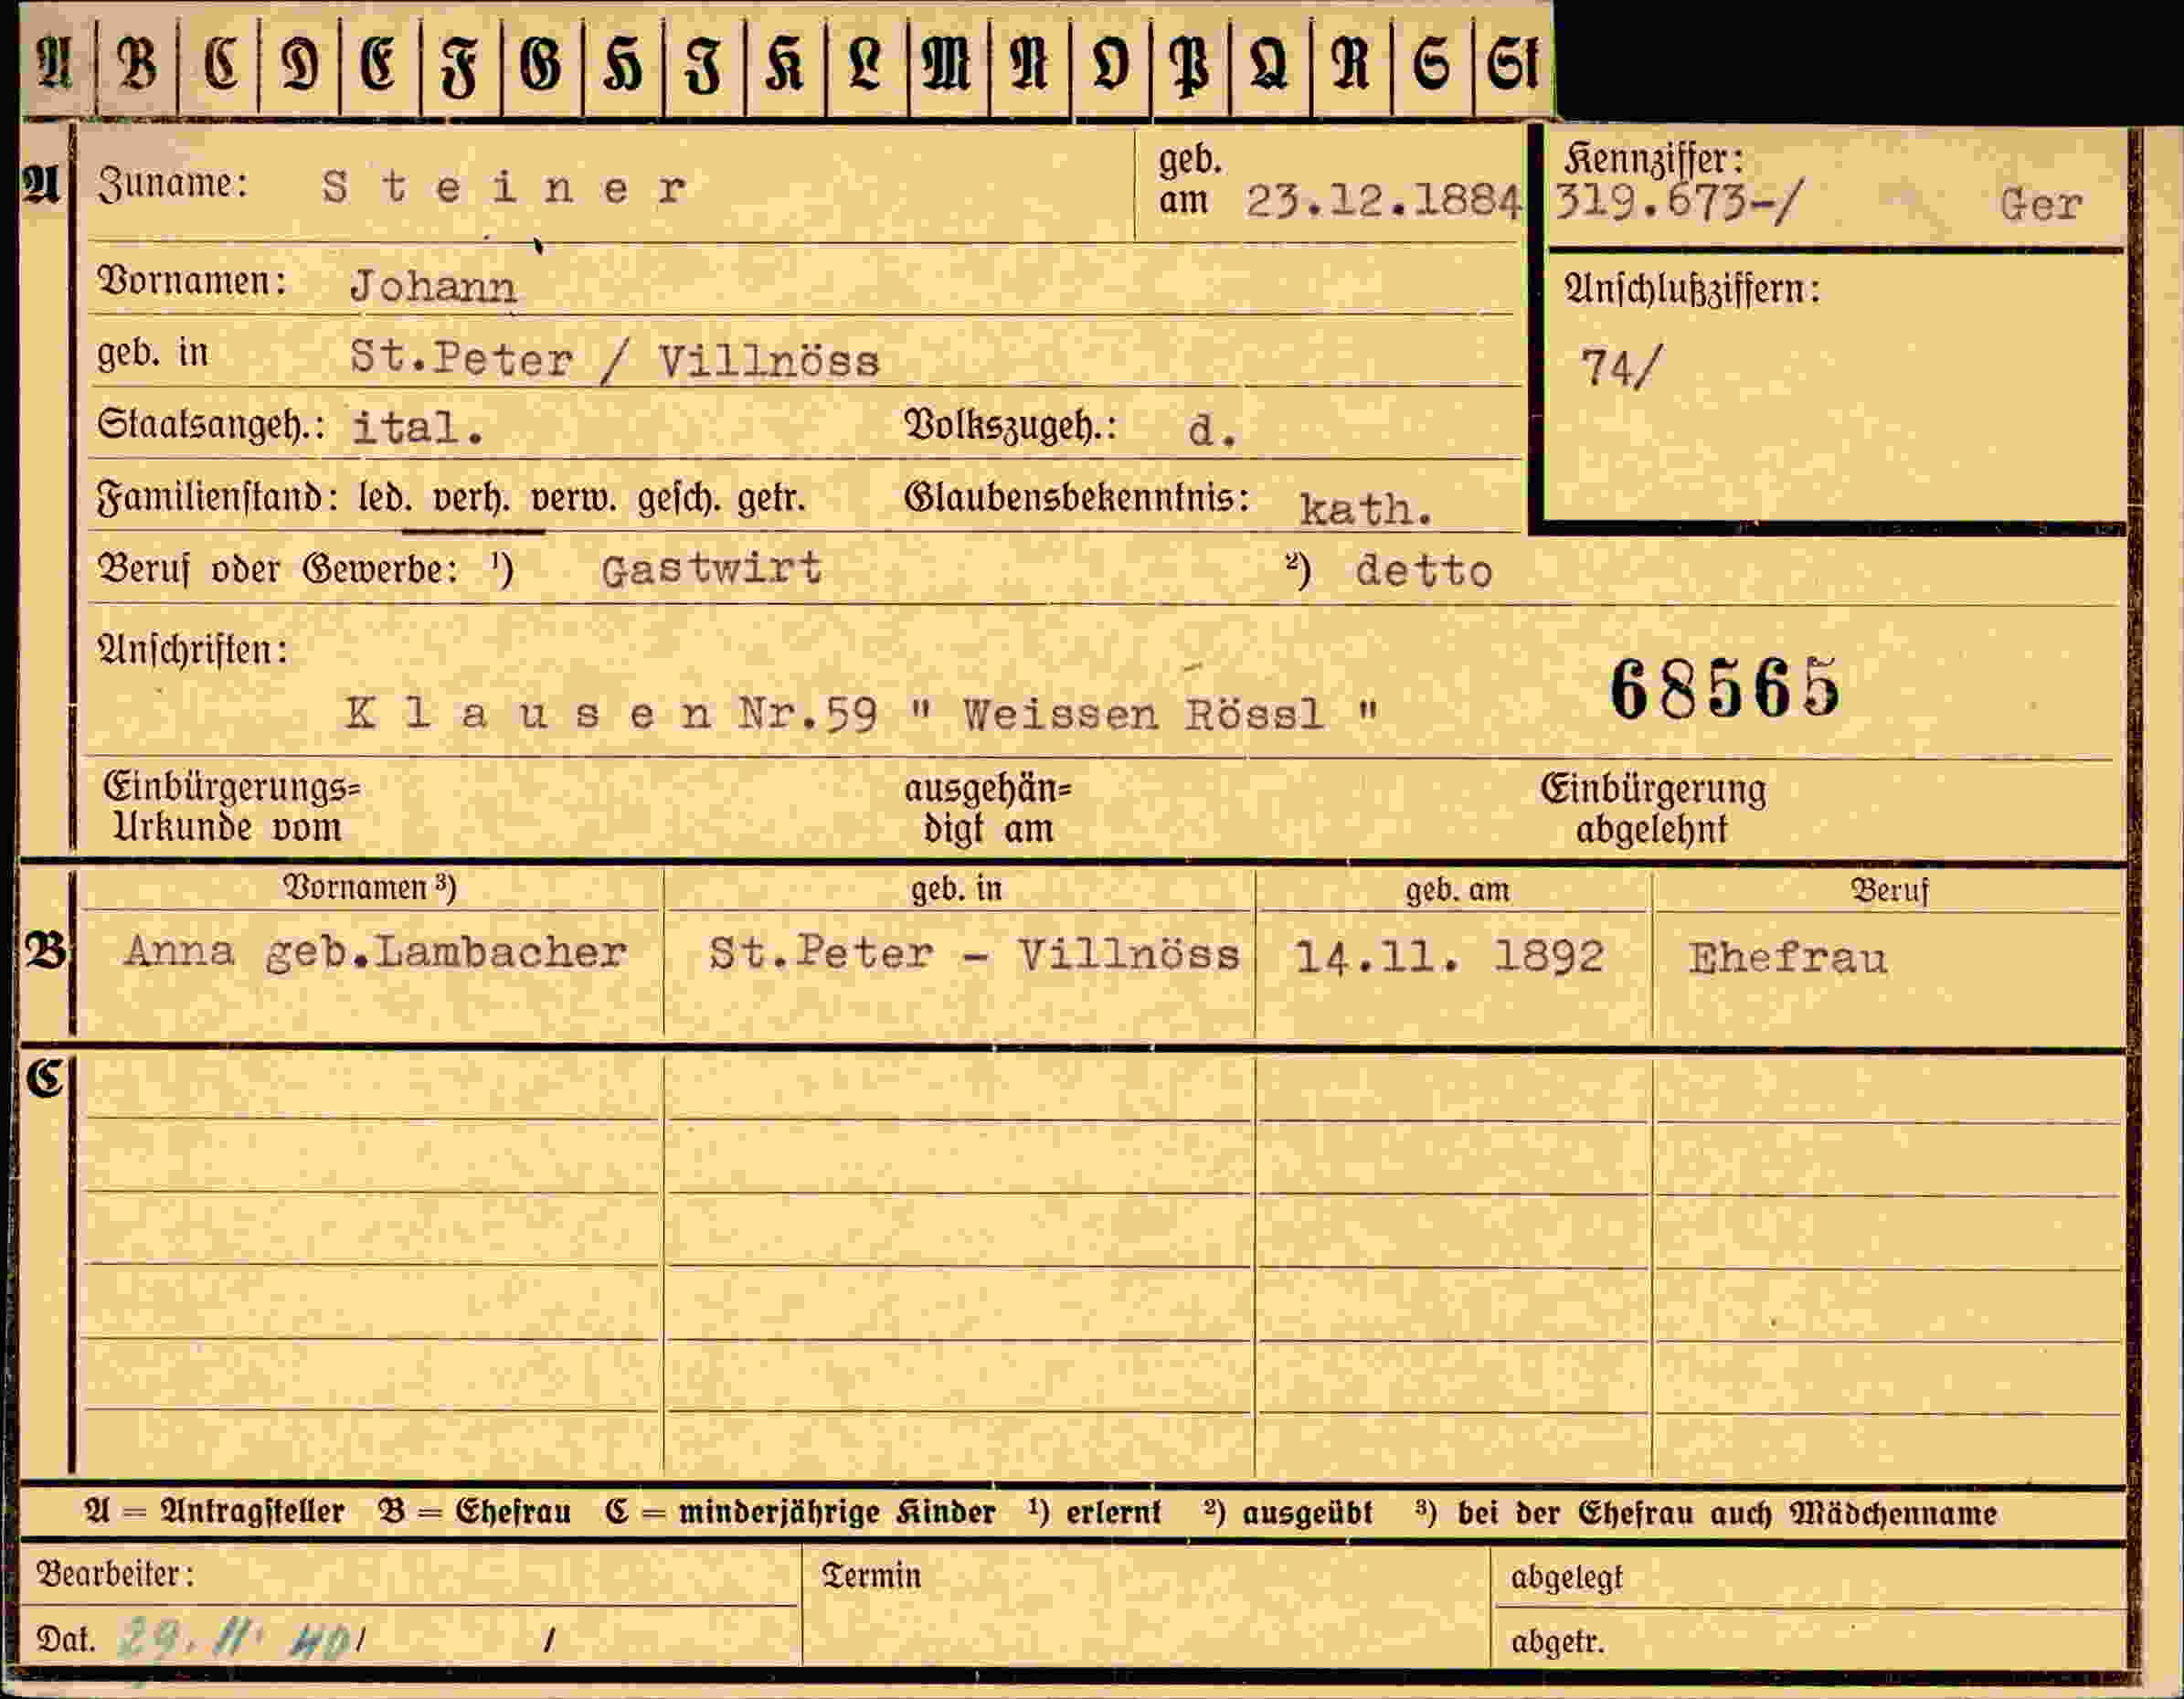 A B C D E F G H I K L M N O P Q R S St
A Zuname: S t e i n e r geb. am 23.12.1884 Kennziffer: 319.673-/ Ger
Vornamen: Johann Anschlußziffern:
geb. in St.Peter / Villnöss 74/
Staatsangeh.: ital. Volkszugeh.: d.
Familienstand: led. verh. verw. gesch. getr. Glaubensbekenntnis: kath.
Beruf oder Gewerbe: ¹) Gastwirt ²) detto
Anschriften:
K l a u s e n Nr.59 " Weissen Rössl " 68565
Einbürgerungs= ausgehän= Einbürgerung
Urkunde vom digt am abgelehnt
Vornamen ³) geb. in geb. am Beruf
B Anna geb.Lambacher St.Peter - Villnöss 14.11. 1892 Ehefrau
C
A = Antragsteller B = Ehefrau C = minderjährige Kinder ¹) erlernt ²) ausgeübt ³) bei der Ehefrau auch Mädchenname
Bearbeiter: Termin abgelegt
Dat. 29. 11. 40 / / abgetr.